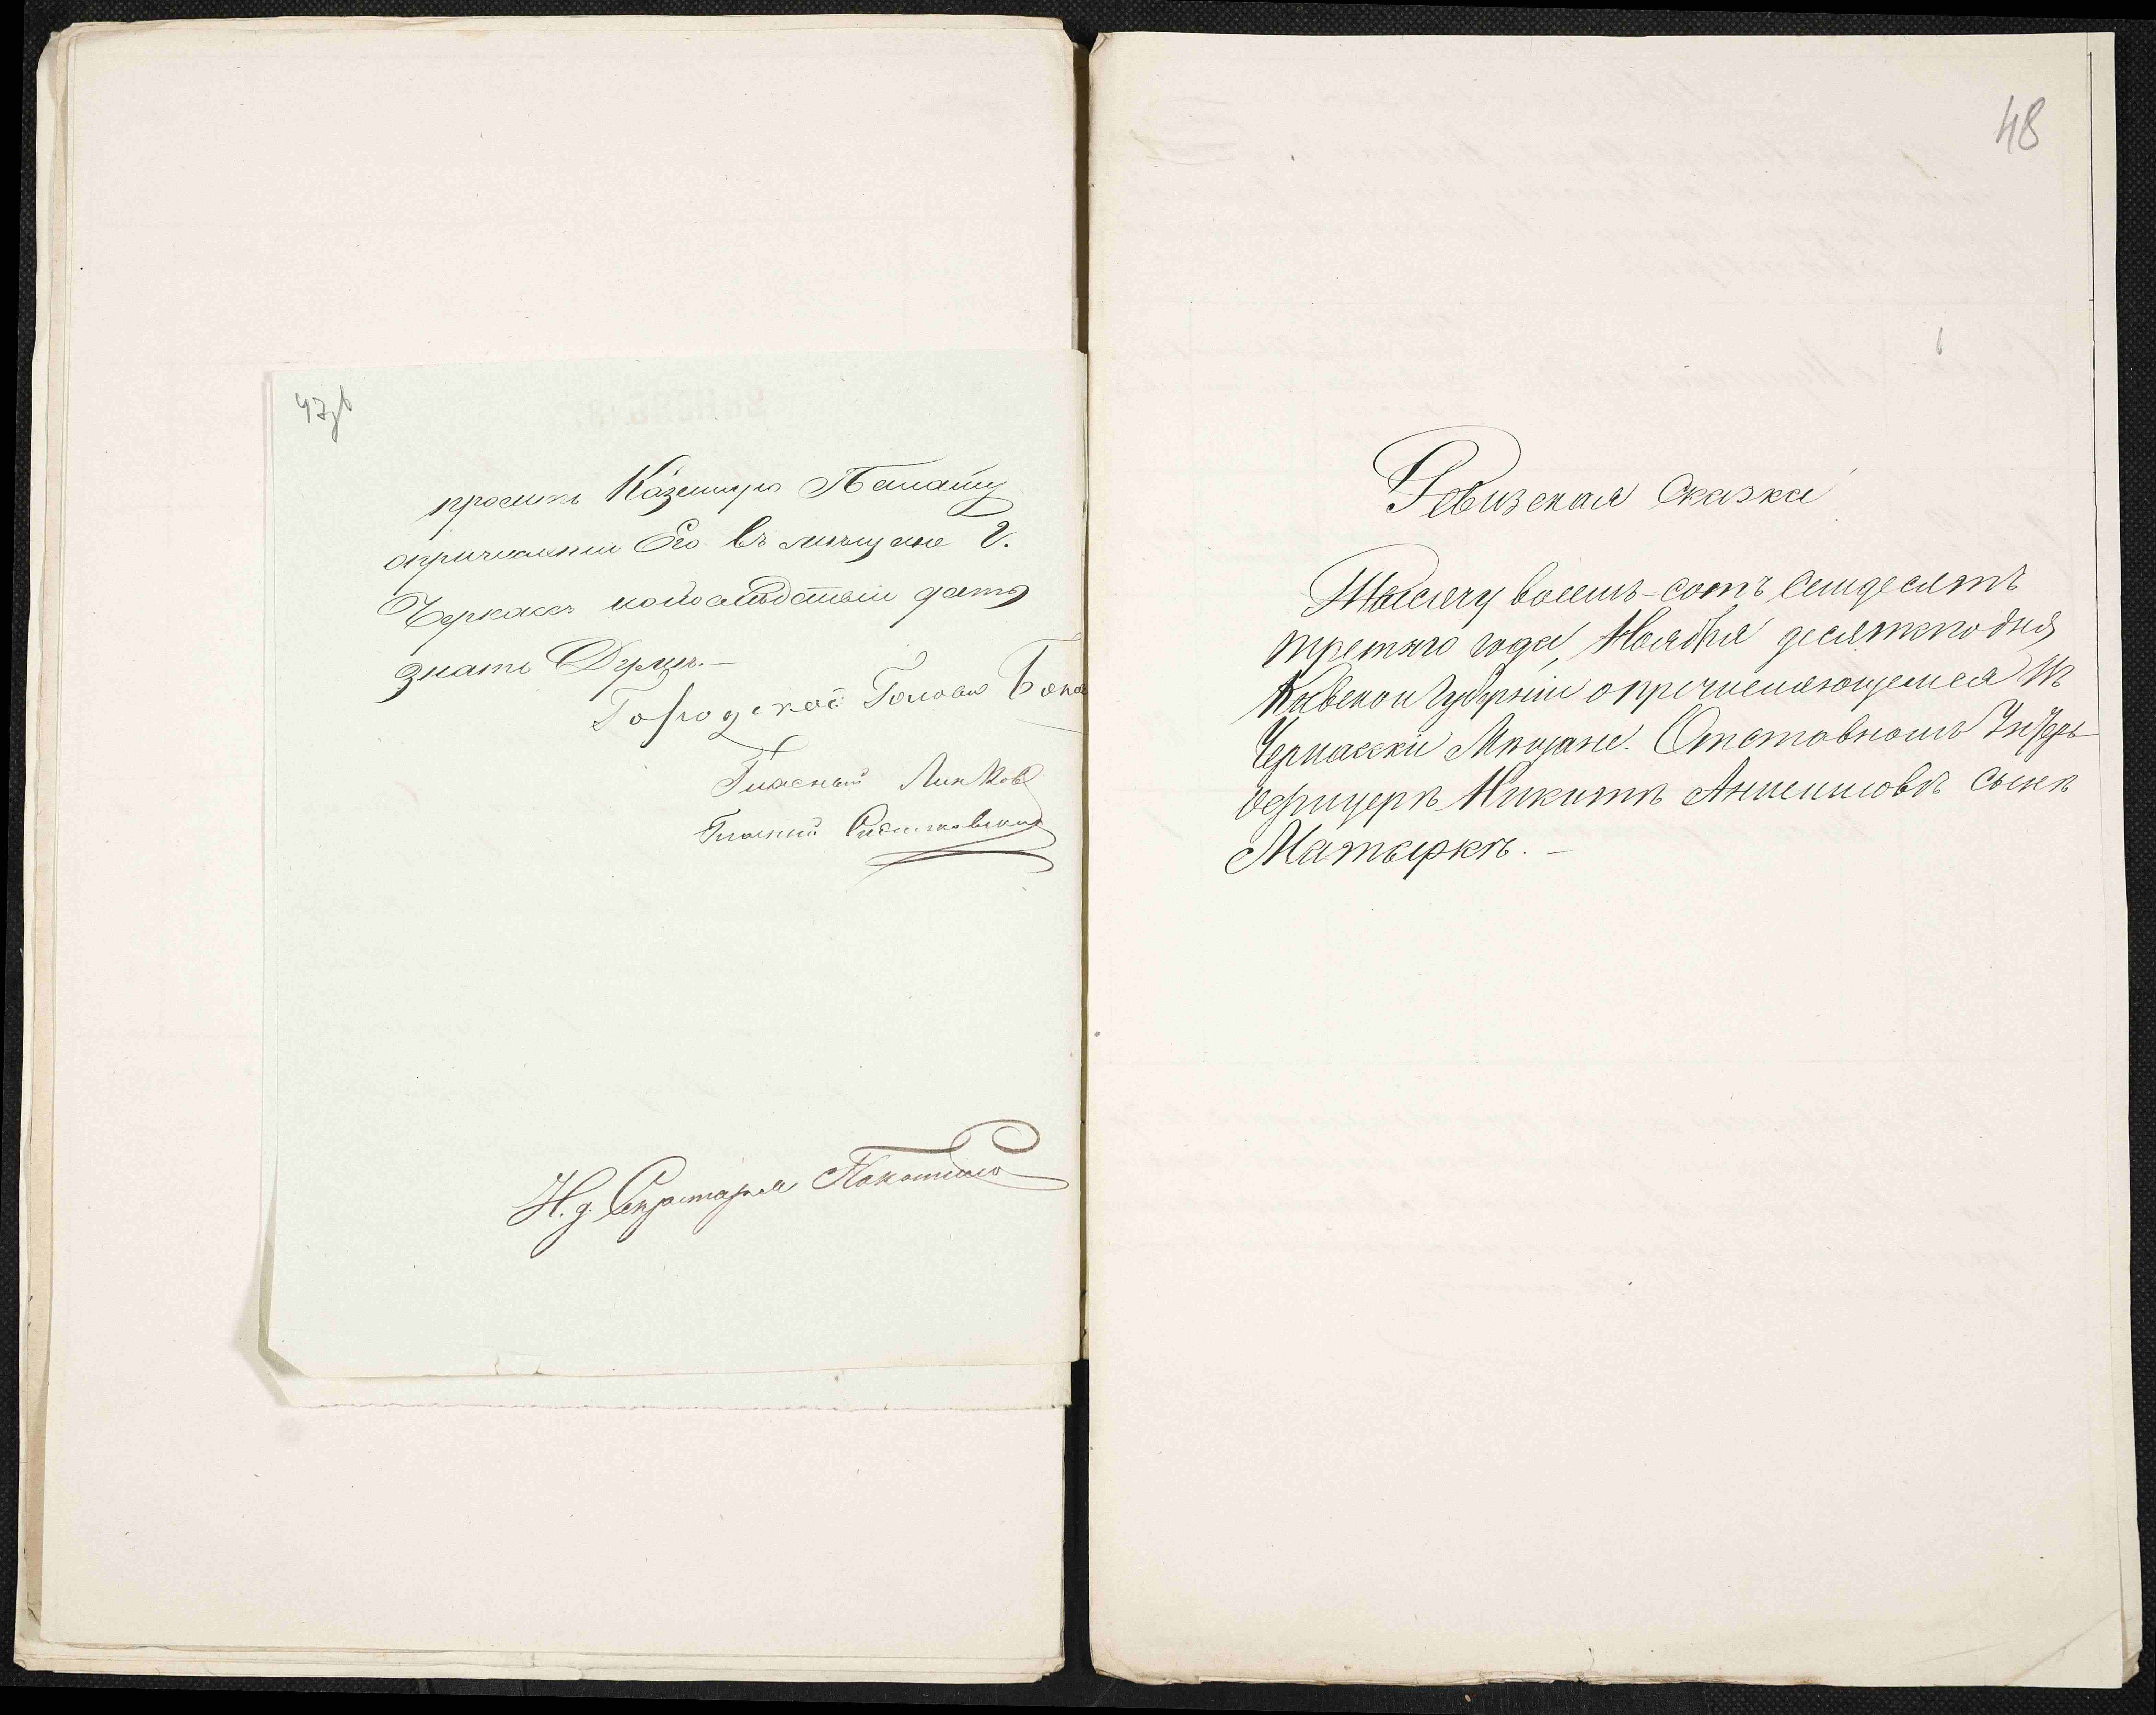 47зв
просить Казенную Палату
опричисленіи Его въ мѣщане г.
Черкассъ ипослѣдствіи дать
знать Думѣ.—
Городской Голова
Гласный
Гласный
И. д. Секретаря Покотило
48
Ревизская Сказка
Тысячу восемь-сотъ семидесятъ
третьго года, Ноября десятого дня
Кіевской Губерніи опричисляющемся въ
Черкасскіе Мѣщане. Отставномъ Унтеръ
Офицерѣ Никитѣ Анисимовѣ сынѣ